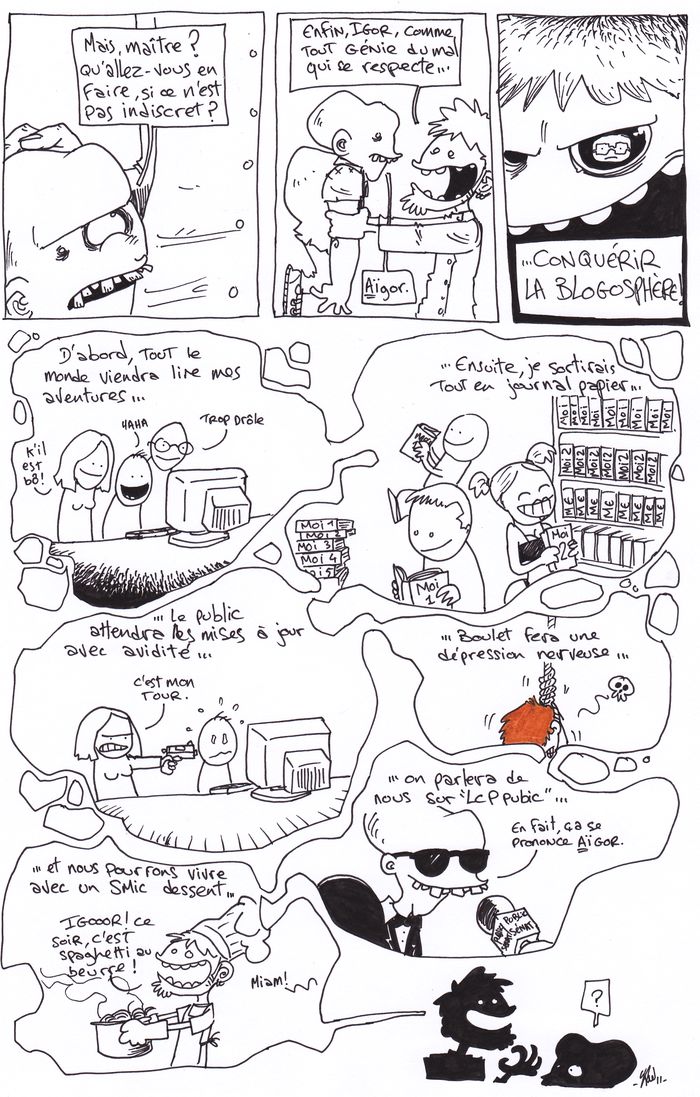 Mais, maître ?
qu'allez-vous en
faire, si ce n'est
pas indiscret ?
Enfin, IGOR, comme
tout génie du mal
qui se respecte...
Aïgor.
...Conquérir
la blogosphère!
D'abord, tout le
monde viendra lire mes
aventures...
K'il
est
bô!
HAHA
Trop drôle
...Ensuite, je sortirais
tout en journal papier...
Moi Moi Moi Moi Moi Moi Moi
Moi 2 Moi 2 Moi 2 Moi 2 Moi 2 Moi 2
ME ME ME ME ME ME ME
Moi 1
Moi 2
Moi 3
Moi 4
Moi 5
Moi
1
Moi
...Le public
attendra les mises à jour
avec avidité...
C'est mon
tour.
...Boulet fera une
dépression nerveuse...
...on parlera de
nous sur "LCP pubic"...
En fait, ça se
prononce Aïgor.
Public
Sénat
...et nous pourrons vivre
avec un Smic dessent...
IGOOOR! ce
soir, c'est
spaghetti au
beurre!
Miam!
?